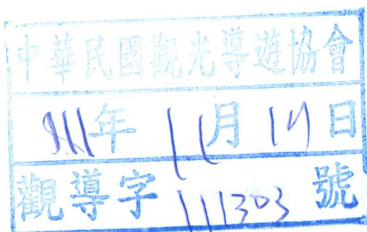 中華民國觀光導遊協會
111年11月17日
觀導字111303號